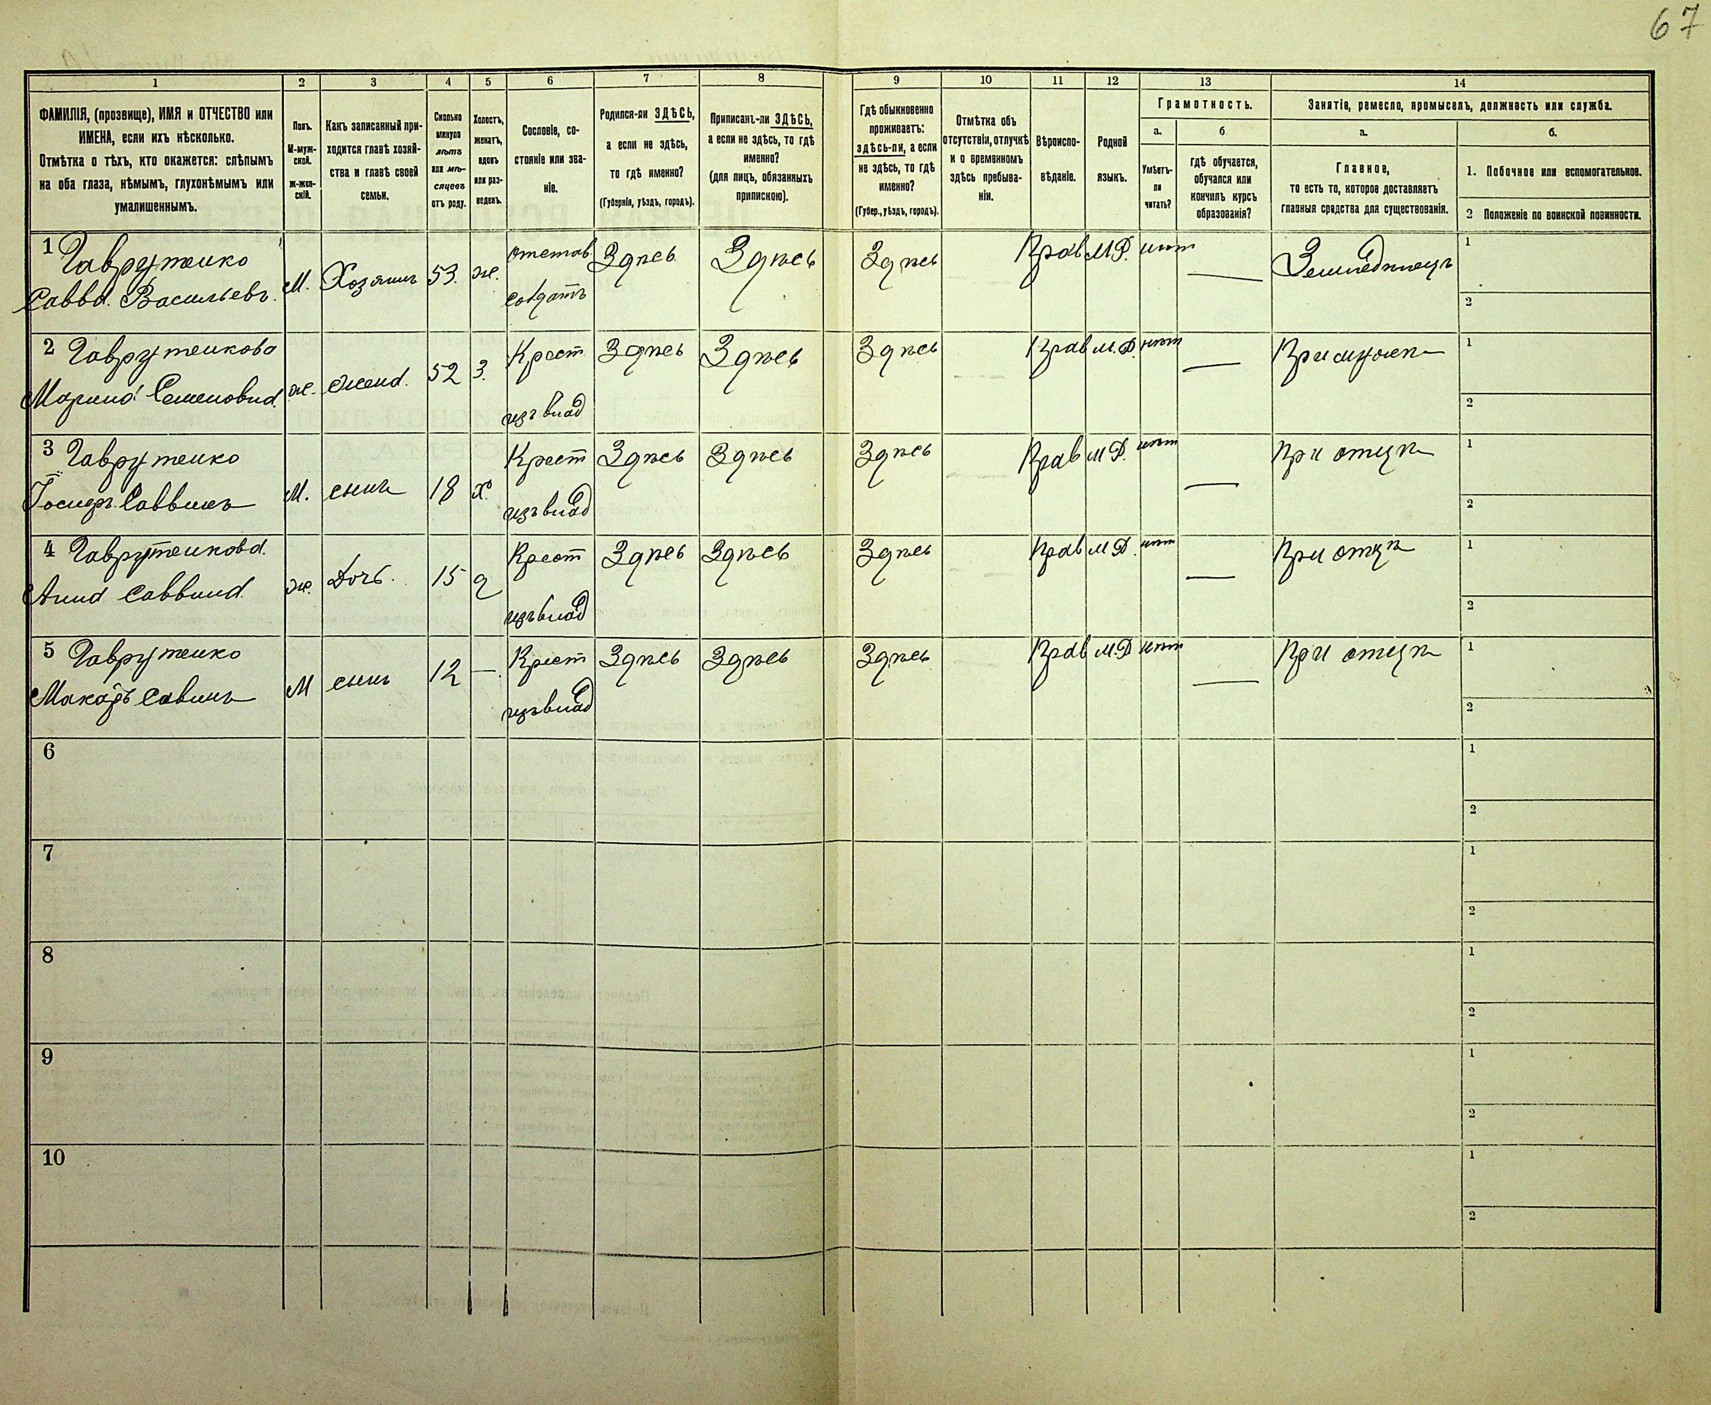 67
1 2 3 4 5 6 7 8 9 10 11 12 13 14
ФАМИЛІЯ, (прозвище), ИМЯ и ОТЧЕСТВО или
ИМЕНА, если ихъ нѣсколько.
Отмѣтка о тѣхъ, кто окажется: слѣпымъ
на оба глаза, нѣмымъ, глухонѣмымъ или
умалишеннымъ.
Полъ.
М-муж-
ской.
ж-жен-
скій.
Какъ записанный при-
ходится главѣ хозяй-
ства и главѣ своей
семьи.
Сколько
минуло
лѣтъ
или мѣ-
сяцевъ
отъ роду.
Холостъ,
женатъ,
вдовъ
или раз-
веденъ.
Сословіе, со-
стояніе или зва-
ніе.
Родился-ли ЗДѢСЬ,
а если не здѣсь,
то гдѣ именно?
(Губернія, уѣздъ, городъ).
Приписанъ-ли ЗДѢСЬ,
а если не здѣсь, то гдѣ
именно?
(для лицъ, обязанныхъ
припискою).
Гдѣ обыкновенно
проживаетъ:
здѣсь-ли, а если
не здѣсь, то гдѣ
именно?
(Губер., уѣздъ, городъ).
Отмѣтка объ
отсутствіи, отлучкѣ
и о временномъ
здѣсь пребыва-
ніи.
Вѣроиспо-
вѣданіе.
Родной
языкъ.
Грамотность.
а.
Умѣетъ-
ли
читать?
б
гдѣ обучается,
обучался или
кончилъ курсъ
образованія?
Занятіе, ремесло, промыселъ, должность или служба.
а.
Главное,
то есть то, которое доставляетъ
главныя средства для существованія.
б.
1. Побочное или вспомогательное.
2 Положеніе по воинской повинности.
1 Гаврутенко отстав Здѣсь Здѣсь Здѣсь Прав М.Р. нѣт Земледѣлецъ 1
Савва Васильевъ. М. Хозяинъ 53. ж. солдатъ 2
2 Гаврутенкова Крест Здѣсь Здѣсь Здѣсь Прав М.Р. нѣт При мужѣ 1
Марина Семеновна. ж. жена. 52 З. изъ влад 2
3 Гаврутенко Крест Здѣсь Здѣсь Здѣсь Прав М.Р. нѣт При отцѣ 1
Саввинъ М. сынъ 18 х. изъ влад 2
4 Гаврутенкова. Крест Здѣсь Здѣсь Здѣсь Прав М.Р. нѣт При отцѣ 1
Анна Саввина. ж. Дочь. 15 д изъ влад 2
5 Гаврутенко Крест Здѣсь Здѣсь Здѣсь Прав М.Р. нѣт При отцѣ 1
Макаръ Савинъ М сынъ 12 — изъ влад 2
6 1
2
7 1
2
8 1
2
9 1
2
10 1
2